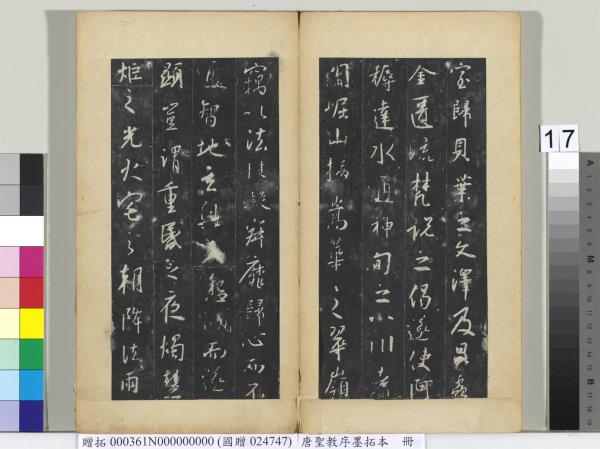 室歸貝葉之文澤及昆蟲
金匱流梵說之偈遂使阿
耨達水通神甸之八川耆
闍崛山接嵩華之翠嶺
竊以法性凝寂靡歸心而不
通智地玄奧感懇誠而遂
顯豈謂重昏之夜燭慧
炬之光火宅之朝降法雨
17
贈拓 000361N000000000 (國贈 024747) 唐聖教序墨拓本 冊